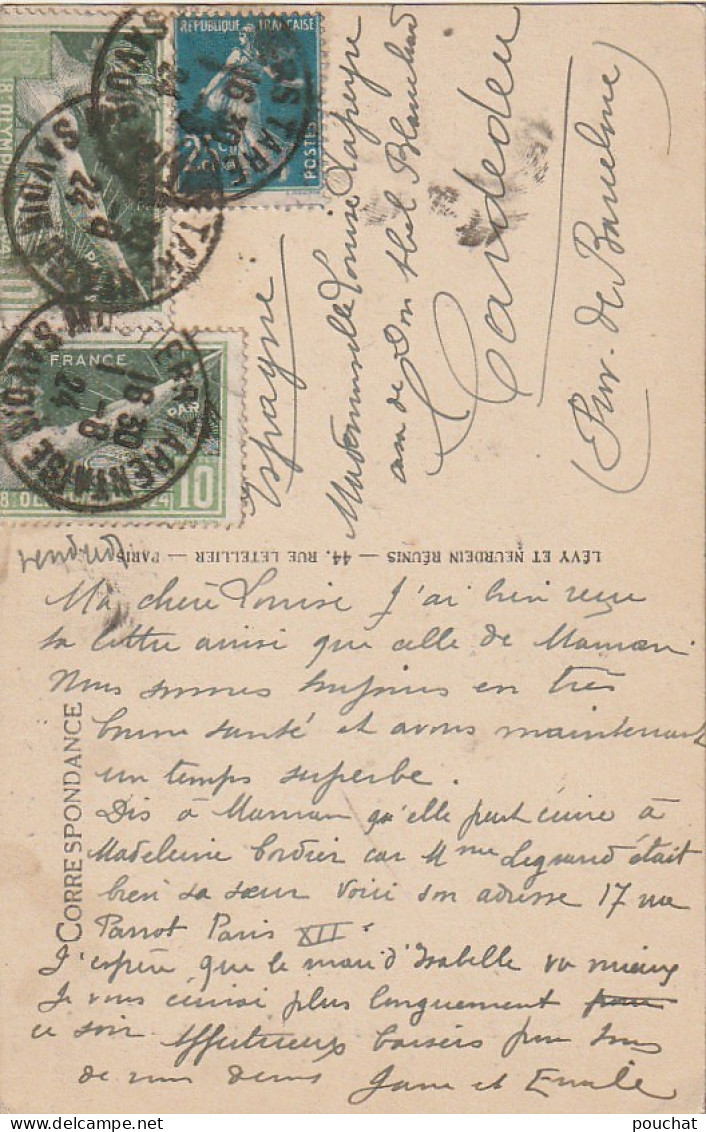 RÉPUBLIQUE FRANÇAISE
25c
POSTES
8E OLYMP
10
FRANCE
PARIS
10
TARENTAISE
SAVOIE
16 30
1 -8
24
Mademoiselle Louise Lapeyre
Cardedeu
(Prov. de Barcelone)
Espagne
LÉVY ET NEURDEIN RÉUNIS — 44, RUE LETELLIER — PARIS
CORRESPONDANCE
vendredi
Ma chère Louise J'ai bien reçu
ta lettre ainsi que celle de Maman
Nous sommes toujours en très
bonne santé et avons maintenant
un temps superbe.
Dis à Maman qu'elle peut écrire à
Madeleine Cordier car Mme Legrand était
bien sa sœur voici son adresse 17 rue
Parrot Paris XII.
J'espère que le mari d'Isabelle va mieux
Je vous écrirai plus longuement pour
ce soir Affectueux baisers pour tous
de nous deux Jane et Emile
pouchat